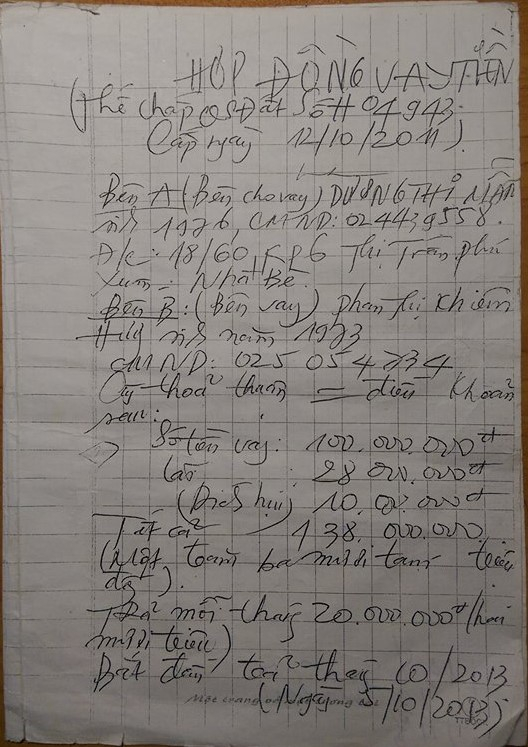 HỢP ĐỒNG VAY TIỀN
(Thế chấp QSĐất Số H 04943
Cấp ngày 12/10/2011).
Bên A (Bên cho vay) DƯƠNG THỊ MẬN
sinh 1976, CMND: 024439558.
Đ/c: 18/60, KP6 Thị Trấn Phú
Xuân - Nhà Bè.
Bên B: (Bên vay) Phan Thị Khiêm
sinh năm 1973
CMND: 025 054 734
Có thoả thuận = điều khoản
sau:
Số tiền vay: 100.000.000đ
Lãi : 28 000.000đ
(Dịch hụi) 10.000.000đ
Tất cả 138.000.000
(Một trăm ba mươi tám triệu
đg).
Trả mỗi tháng 20.000.000đ/hai
mươi triệu)
Bắt đầu tại tháng 10/2013
(Ngày 5/10/2013)